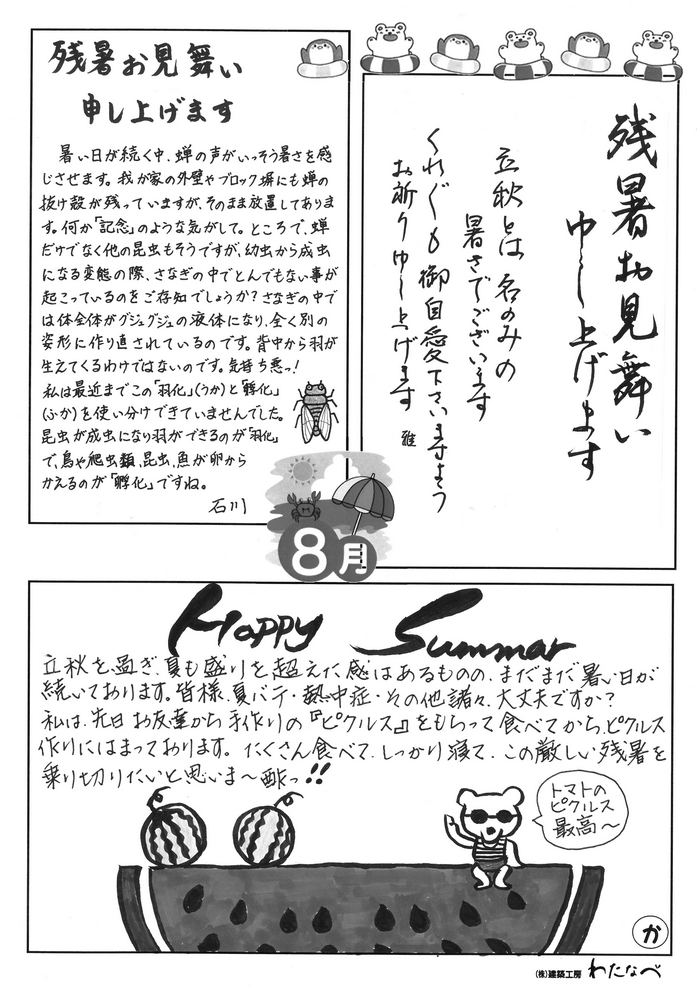 残暑お見舞い
申し上げます
暑い日が続く中、蝉の声がいっそう暑さを感
じさせます。我が家の外壁やブロック塀にも蝉の
抜け殻が残っていますが、そのまま放置してありま
す。何か「記念」のような気がして。ところで、蝉
だけでなく他の昆虫もそうですが、幼虫から成虫
になる変態の際、さなぎの中でとんでもない事が
起こっているのをご存知でしょうか？さなぎの中で
は体全体がグジュグジュの液体になり、全く別の
姿形に作り直されているのです。背中から羽が
生えてくるわけではないのです。気持ち悪っ！
私は最近までこの「羽化」(うか)と「孵化」
(ふか)を使い分けできていませんでした。
昆虫が成虫になり羽ができるのが「羽化」
で、鳥や爬虫類、昆虫、魚が卵から
かえるのが「孵化」ですね。
石川
残暑お見舞い
申し上げます
立秋とは名のみの
暑さでございます
くれぐれも御自愛下さいますよう
お祈り申し上げます
雅
8月
Happy Summer
立秋を過ぎ、夏も盛りを超えた感はあるものの、まだまだ暑い日が
続いております。皆様、夏バテ・熱中症・その他諸々、大丈夫ですか？
私は、先日お友達から手作りの『ピクルス』をもらって食べてから、ピクルス
作りにはまっております。たくさん食べて、しっかり寝て、この厳しい残暑を
乗り切りたいと思いま〜酢っ!!
トマトの
ピクルス
最高〜
か
(株)建築工房 わたなべ